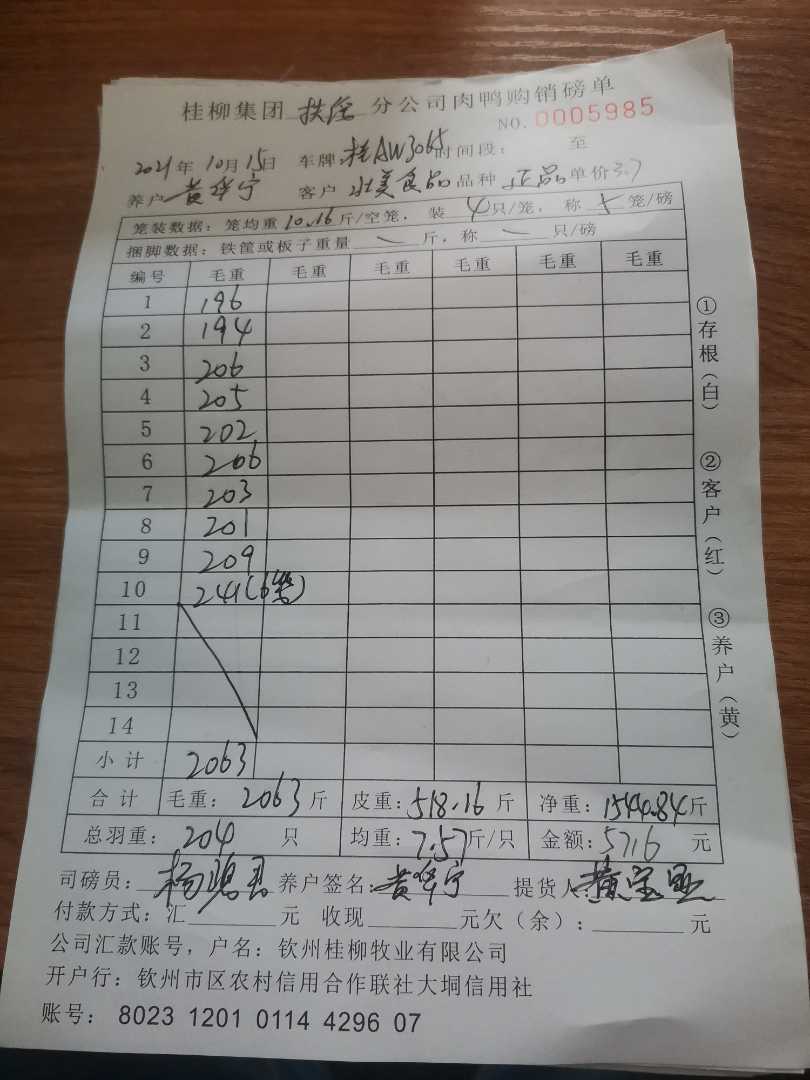 桂柳集团 扶绥 分公司肉鸭购销磅单
NO.0005985
2021年10月15日 车牌:桂AW3065时间段: 至
养户黄华宁 客户 壮美食品 品种 正品 单价3.7
笼装数据: 笼均重10.16斤/空笼, 装 4只/笼, 称 5笼/磅
捆脚数据: 铁筐或板子重量 斤, 称 只/磅
编号 毛重 毛重 毛重 毛重 毛重 毛重
1 196
2 194
3 206
4 205
5 202
6 206
7 203
8 201
9 209
10 241(6笼)
11
12
13
14
小计 2063
合计 毛重: 2063斤 皮重:518.16斤 净重:1544.84斤
总羽重: 204 只 均重:7.57斤/只 金额:5716 元
司磅员: 养户签名:黄华宁 提货人:
付款方式: 汇 元 收现 元欠(余): 元
公司汇款账号, 户名: 钦州桂柳牧业有限公司
开户行: 钦州市区农村信用合作联社大垌信用社
账号: 8023 1201 0114 4296 07
①存根(白) ②客户(红) ③养户(黄)